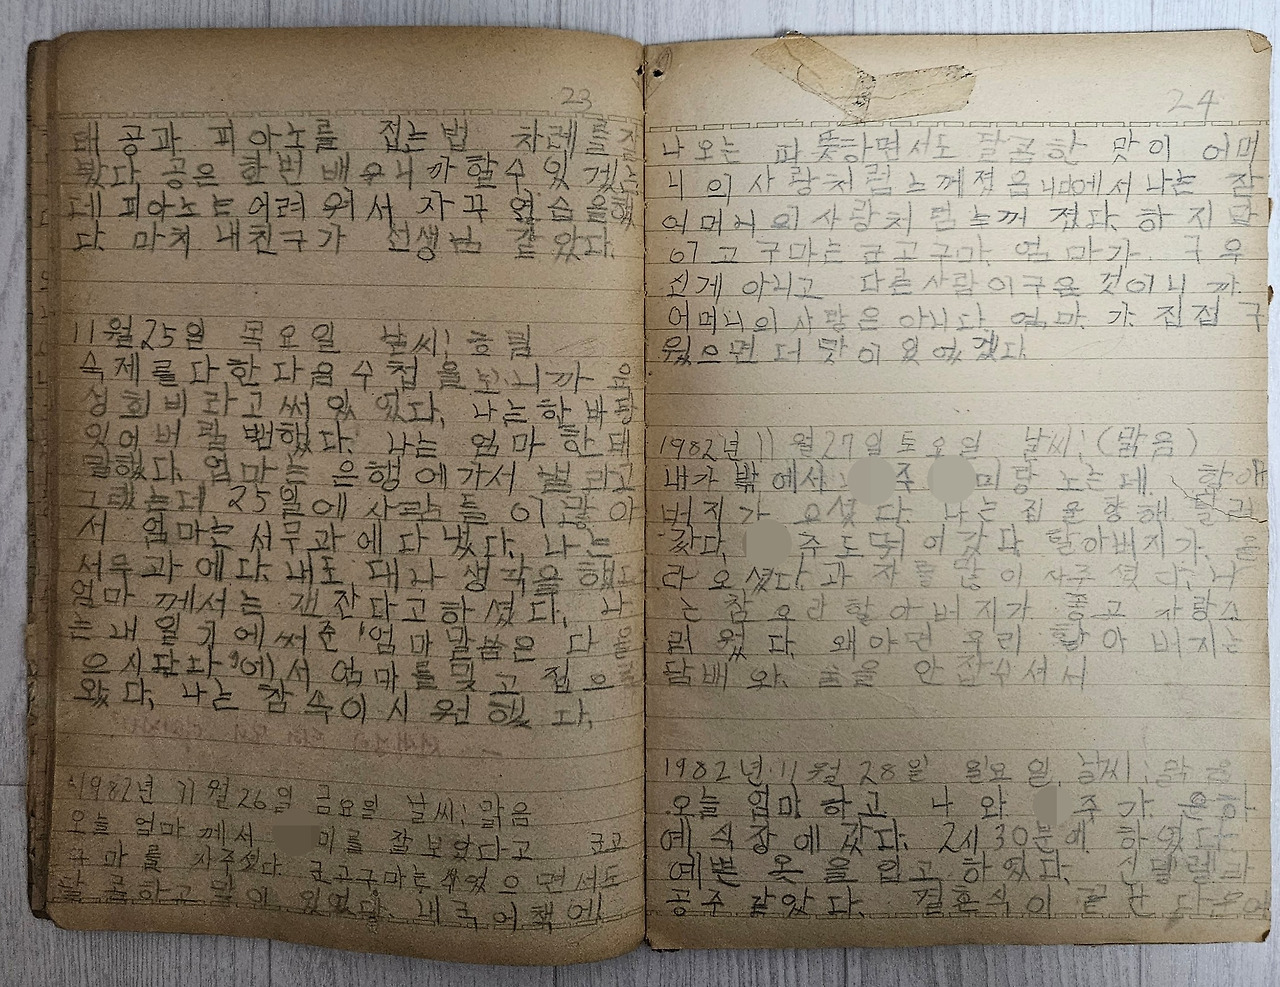 23
태 공과 피아노를 접는법 차례를
봤다 공은 한번 배우니까 할수 있겠는
데 피아노는 어려워서 자꾸 연습을 했
다. 마치 내친구가 선생님 같았다.
11월 25일 목요일 날씨: 흐림
숙제를 다한 다음 수첩을 보니까
성회비라고 써 있었다. 나는 한바탕
잊어버릴 뻔했다. 나는 엄마 한테
말했다. 엄마는 은행에 가서 낼라고
그랬는데 25일에 사람들이 많아
서 엄마는 서무과에다 냈다. 나는
서무과에다. 내도 대나 생각을 했다
엄마께서는 갠찬다고 하셨다. 나
는 내 일기에 써준 '엄마말씀은 다 옳
으시단다'에서 엄마를 믿고 집으로
왔다. 나는 참 속이 시원했다.
1982년 11월 26일 금요일 날씨: 맑음
오늘 엄마께서 미를 잘 보았다고 군고
구마를 사주셨다. 군고구마는 식었으면서도
달콤하고 맛이 있었다. 내 국어책에
24
나오는 따뜻하면서도 달콤한 맛이 어머
니의 사랑처럼 느껴졌음니다에서 나는 참
어머니의 사랑처럼 느껴졌다. 하지만
이 고구마는 군고구마. 엄마가 구우
신게 아리고 다른사람이 구은 것이니까
어머니의 사랑은 아니다. 엄마가 직접 구
웠으면 더 맛이 있었겠다.
1982년 11월 27일 토요일 날씨: (맑음)
내가 밖에서 주 미랑 노는데. 할아
버지가 오셨다. 나는 집을 향해 달려
갔다. 주도 뛰어갔다. 할아버지가. 놀
라 오셨다. 과자를 많이 사주셨다. 나
는 참 우리 할아버지가 좋고 자랑스
러웠다. 왜아면 우리 할아버지는
담배와. 술을 안 잡수셔서
1982년 11월 28일 일요일, 날씨: 맑음
오늘 엄마하고 나와 주가.
예식장에 갔다. 2시 30분에. 하였다.
예쁜 옷을 입고 하였다. 신발렐라
공주 같았다. 결혼식이 끝난 다음에